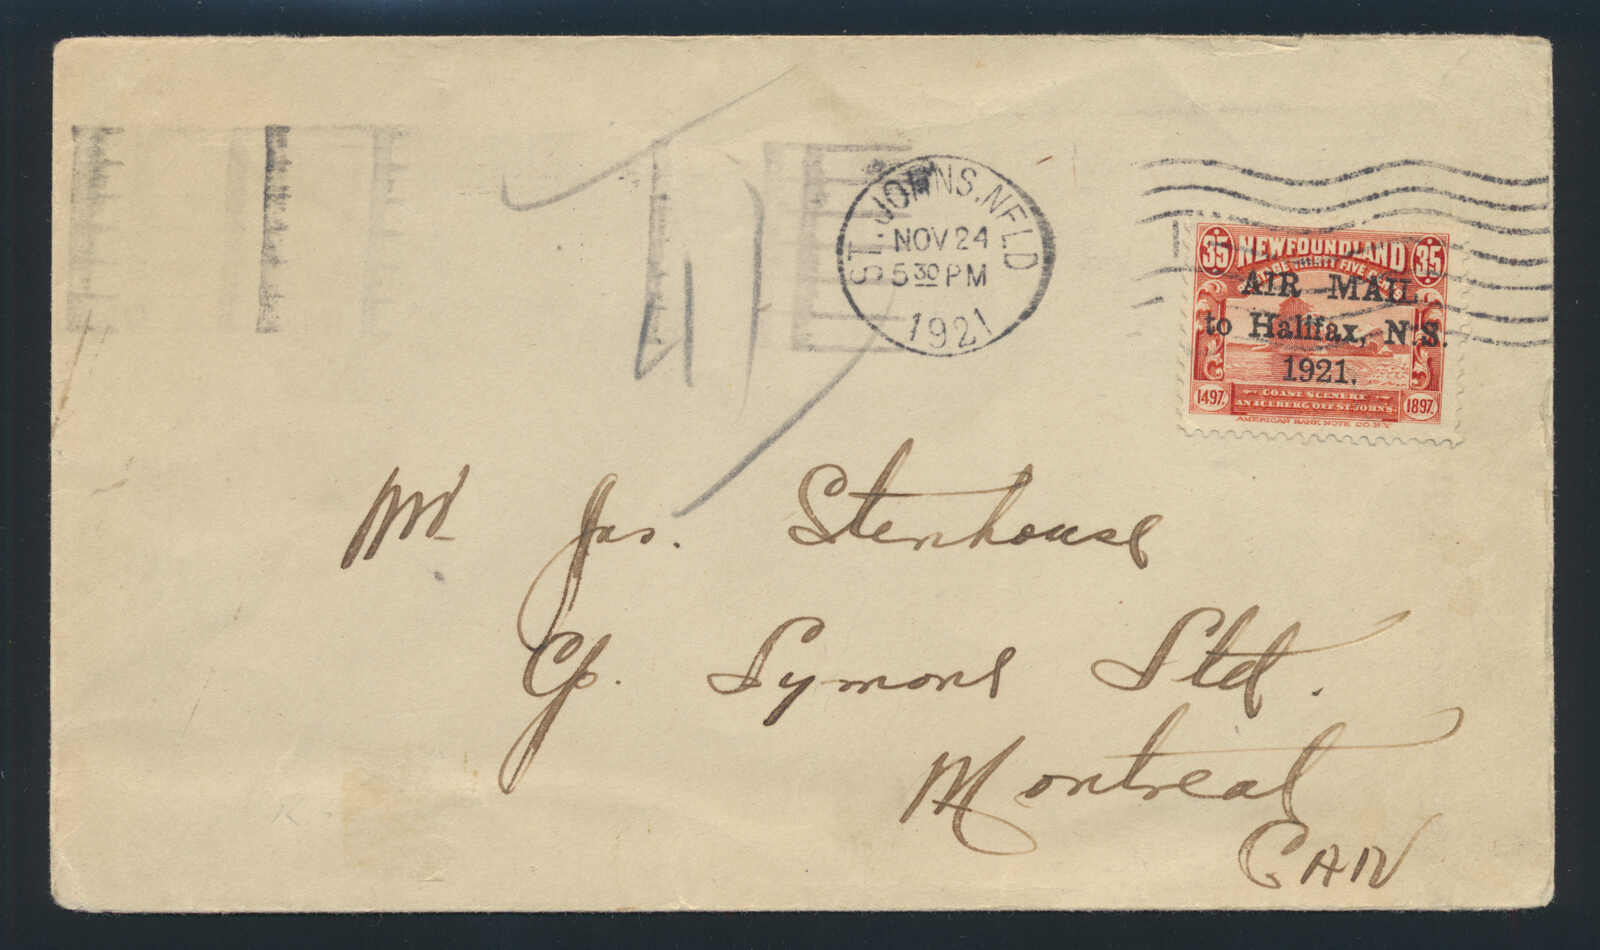 ST. JOHNS. NFLD
NOV 24
5 30 PM
1921
35 NEWFOUNDLAND 35
THIRTY FIVE
AIR MAIL
to Halifax, N.S.
1921.
1497. COAST SCENERY 1897.
AN ICEBERG OFF ST. JOHN'S.
AMERICAN BANK NOTE CO. N.Y.
Mr Jas. Stenhouse
C/o. Symons Ltd.
Montreal
CAN